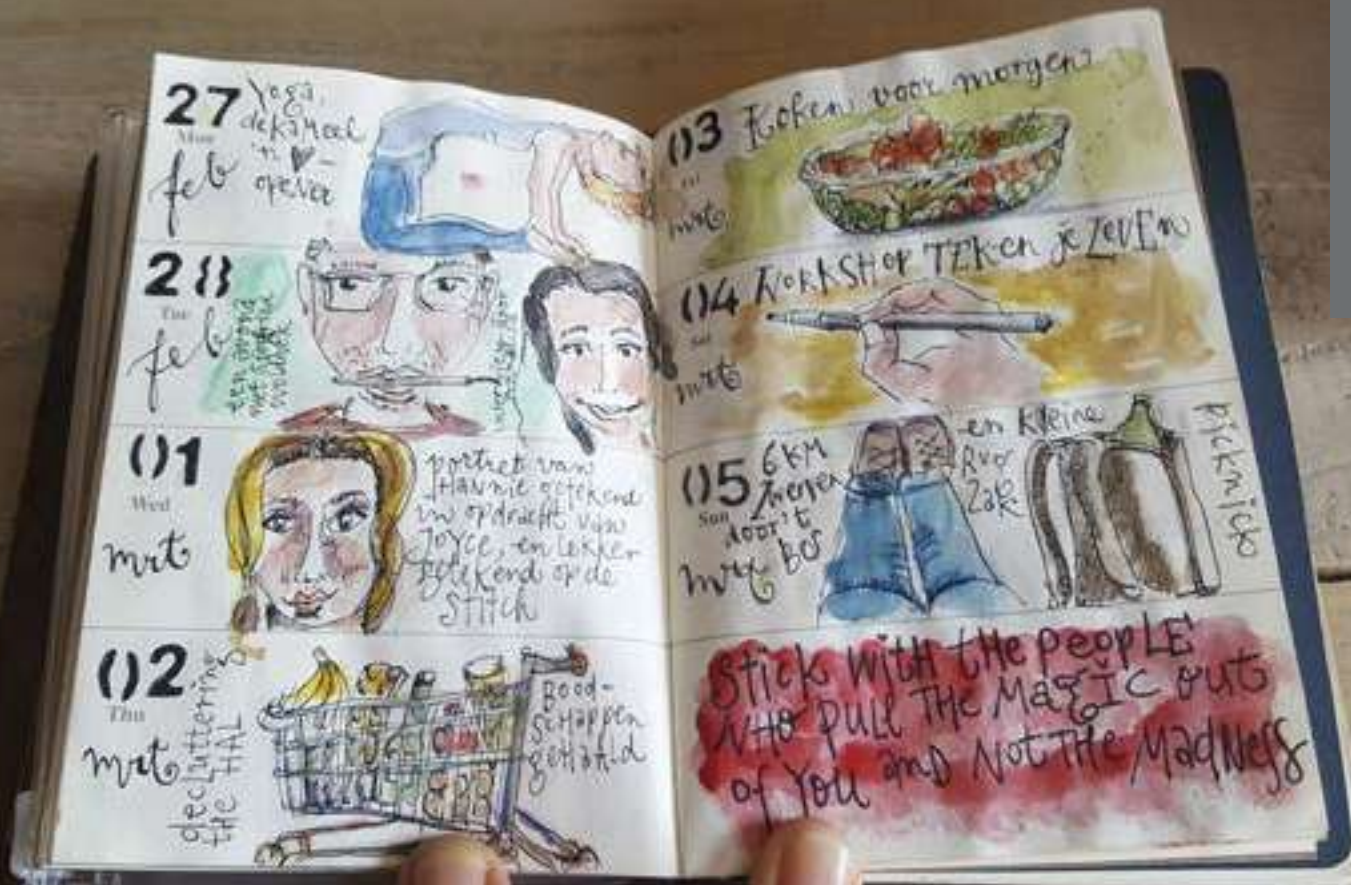 27
Mon
feb
Yoga,
de kameel
'n ♥-
opener
28
Tue
feb
een avond
met Sjoerd
01
Wed
mrt
portret van
Hannie getekend
in opdracht van
Joyce, en lekker
getekend op de
Stitch
02
Thu
mrt
decluttering
the HAL
Bood-
schappen
gehaald
03
Fri
mrt
Koken voor morgen
04
Sat
mrt
WORKSHOP TEKEN je LEVEN
05
Sun
mrt
6 KM
door 't
Bos
en kleine
Rug
Zak
picknick
Stick with the people
WHO pull THE MAGIC out
of You and NOT THE MadNess